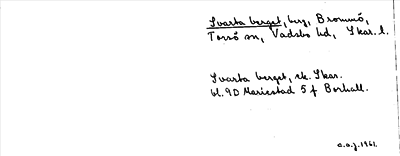 Svarta berget, berg, Brommö,
Torsö sn, Vadsbo hd, Skar. l.
Svarta berget, ek. Skar.
bl. 9D Mariestad 5 f Borhall.
a.a.j. 1961.